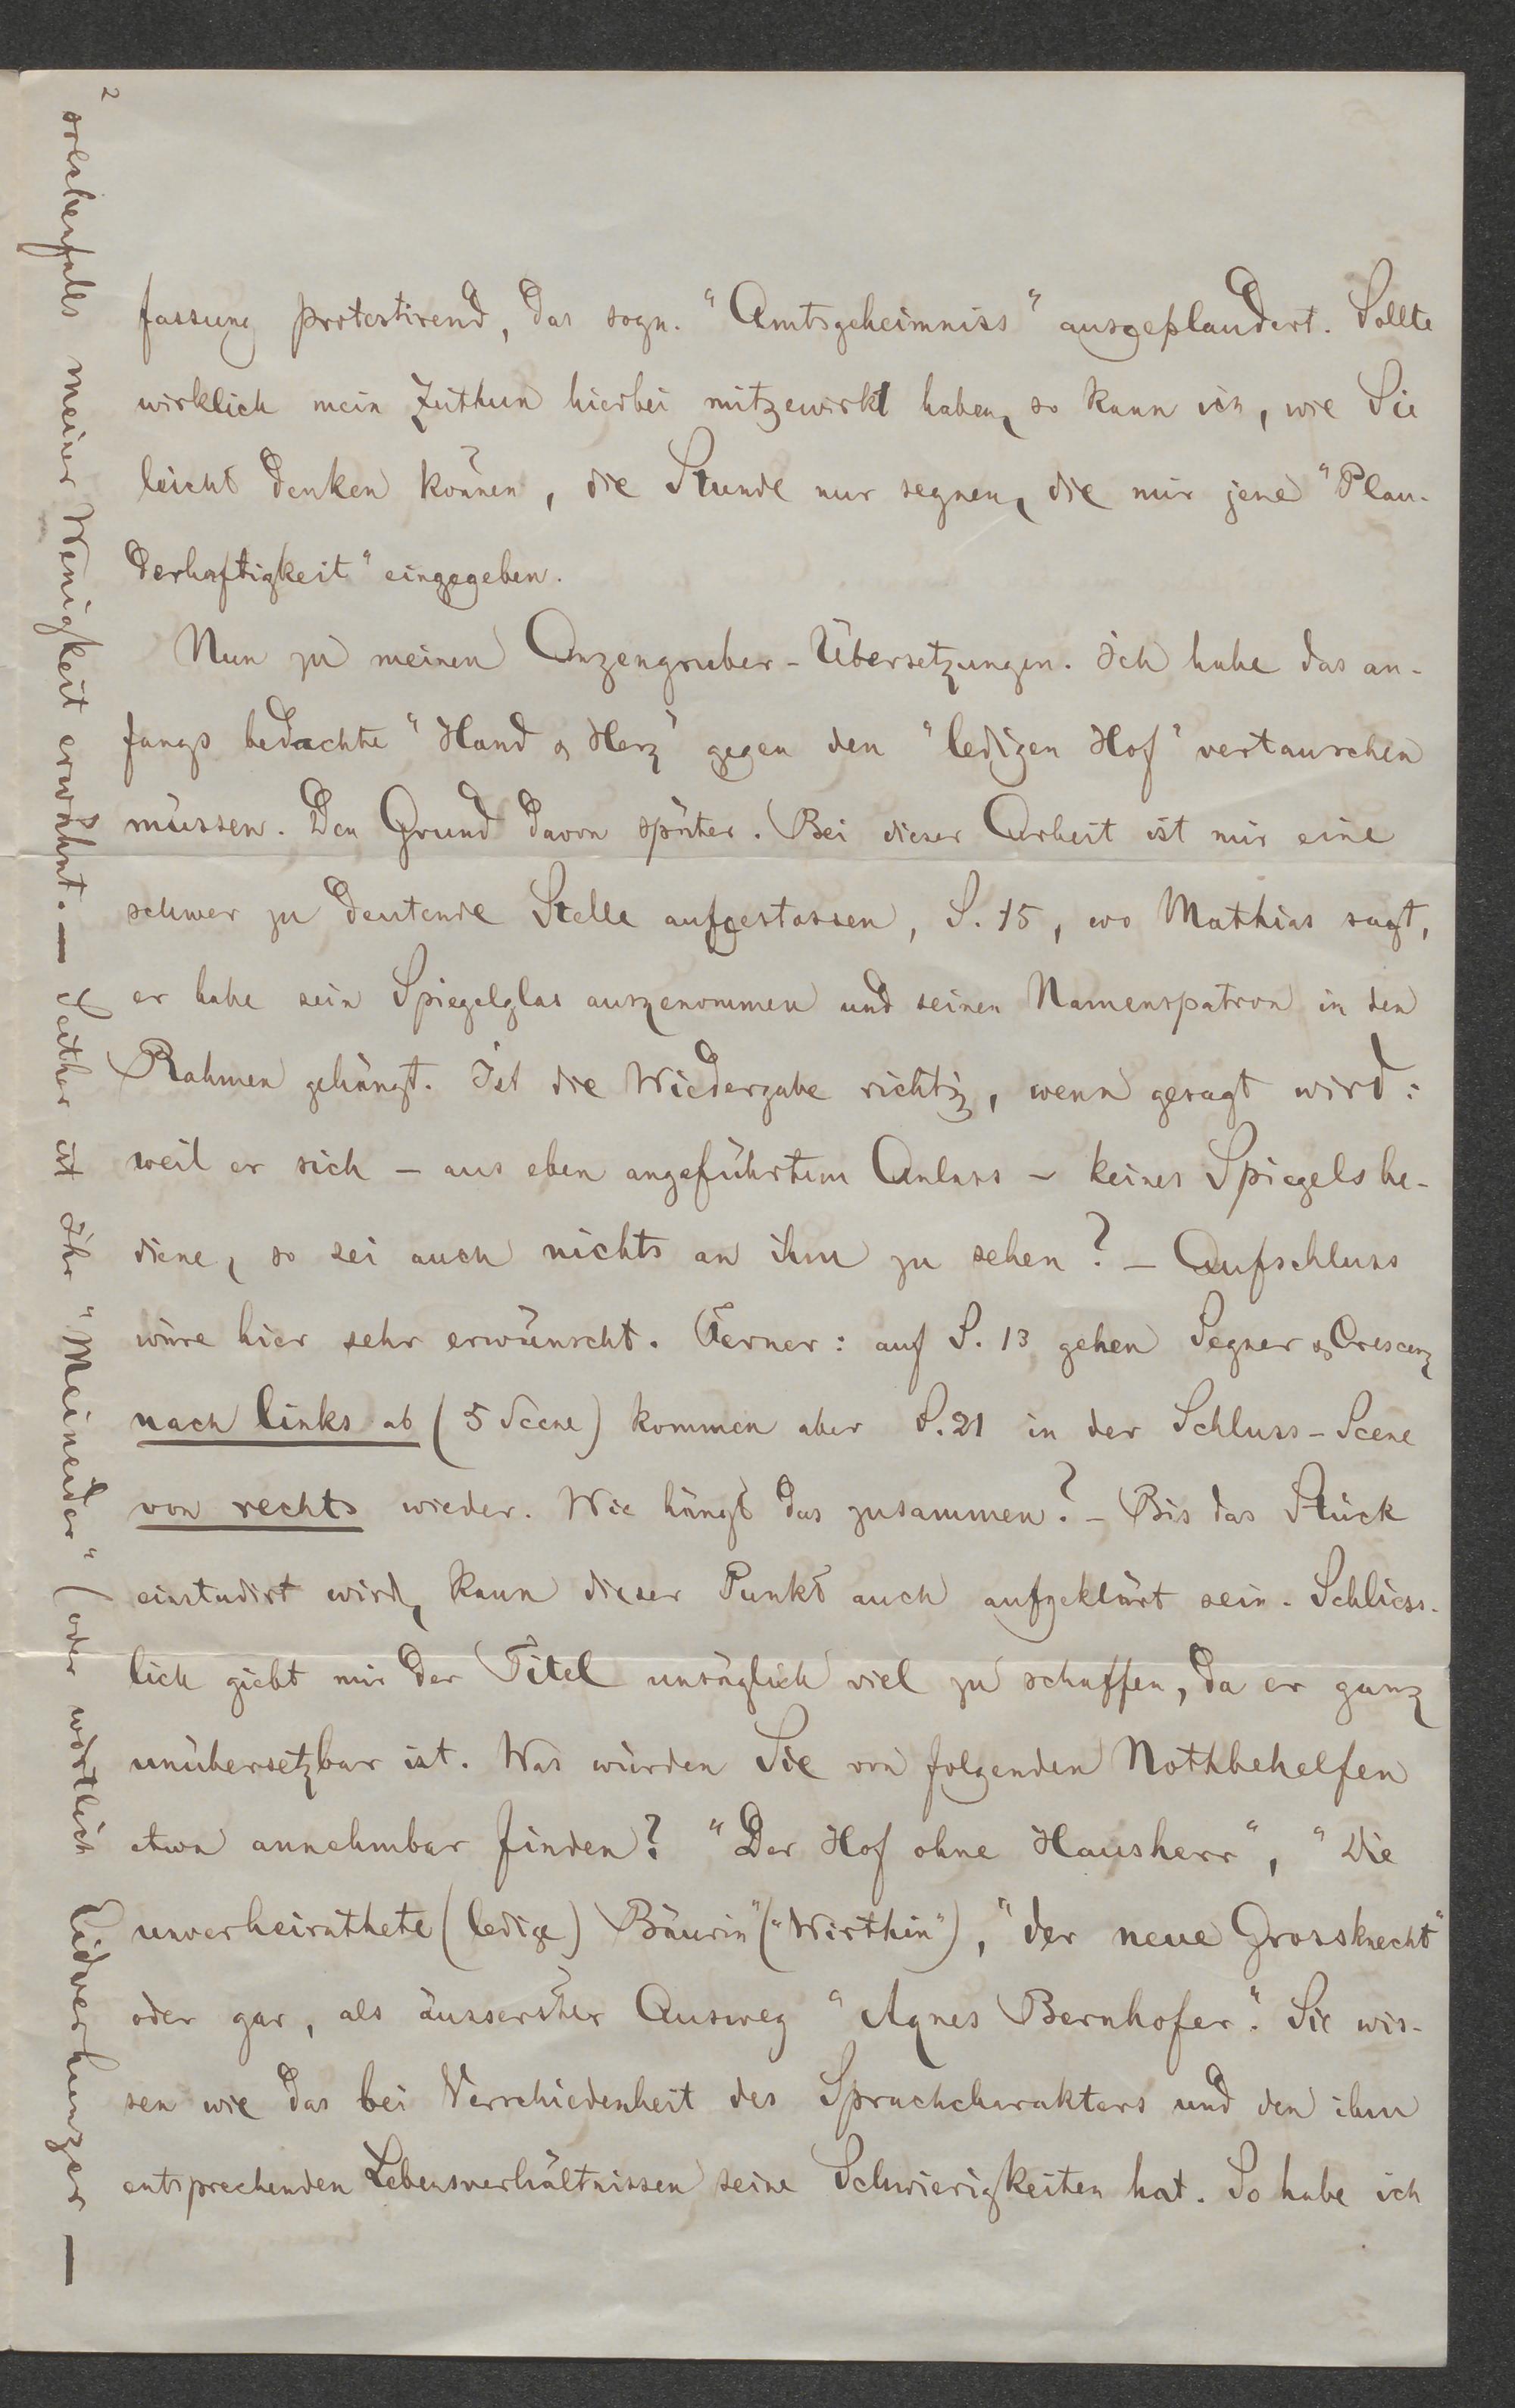 fassung protestirend, das sogn. "Amtsgeheimniss" ausgeplaudert. Sollte
wirklich mein Zuthun hierbei mitgewirkt haben, so kann ich, wie Sie
leicht denken können, die Stunde nur segnen, die mir jene "Plau-
derhaftigkeit" eingegeben.
Nun zu meinen Anzengruber-Übersetzungen. Ich habe das an-
fangs bedachte "Hand & Herz" gegen den "ledigen Hof" vertauschen
müssen. Den Grund davon später. Bei dieser Arbeit ist mir eine
schwer zu deutende Stelle aufgestossen, S. 15, wo Mathias sagt,
er habe sein Spiegelglas ausgenommen und seinen Namenspatron in den
Rahmen gehängt. Ist die Wiedergabe richtig, wenn gesagt wird:
weil er sich – aus eben angeführtem Anlass – keines Spiegels be-
diene, so sei auch nichts an ihm zu sehen? – Aufschluss
wäre hier sehr erwünscht. Ferner: auf S. 13 gehen Segner & Crescenz
nach links ab (5 Scene) kommen aber S. 21 in der Schluss-Scene
von rechts wieder. Wie hängt das zusammen? – Bis das Stück
einstudirt wird, kann dieser Punkt auch aufgeklärt sein. Schliess-
lich giebt mir der Titel unsäglich viel zu schaffen, da er ganz
unübersetzbar ist. Was würden Sie von folgenden Nothbehelfen
etwa annehmbar finden? "Der Hof ohne Hausherr", "Die
unverheirathete (ledige) Bäurin" ("Wirthin"), "der neue Grossknecht"
oder gar, als äusserster Ausweg "Agnes Bernhofer". Sie wis-
sen wie das bei Verschiedenheit des Sprachcharakters und den ihm
entsprechenden Lebensverhältnissen seine Schwierigkeiten hat. So habe ich
2
solchenfalls meiner Wenigkeit erwähnt. — Seither ist Ihr "Meineider" (oder wörtlich Eidverhunzer —